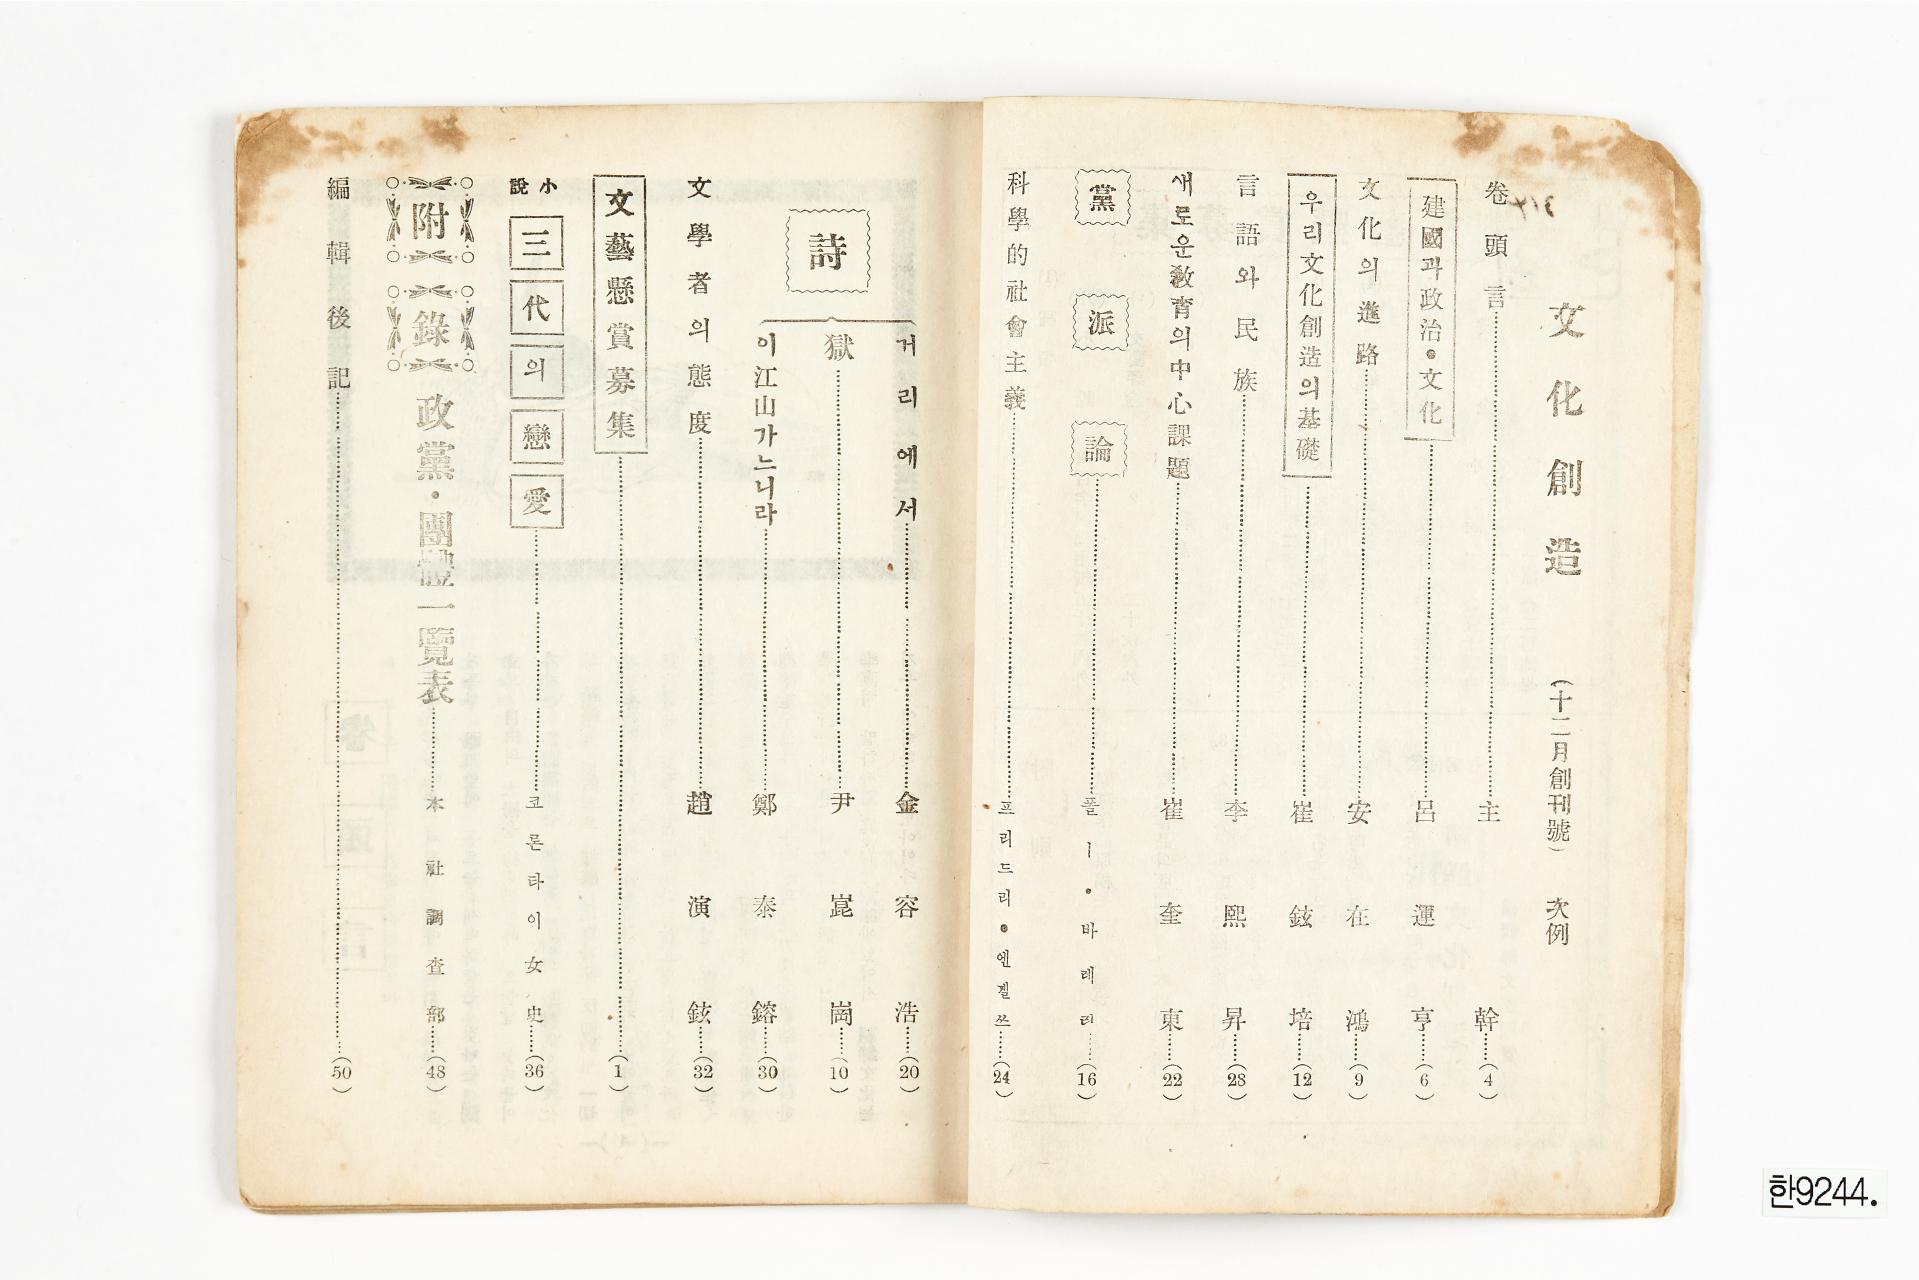 文化創造 (十二月創刊號) 次例
卷頭言 主幹 (4)
建國과政治・文化 呂運亨 (6)
文化의進路 安在鴻 (9)
우리文化創造의基礎 崔鉉培 (12)
言語와民族 李熙昇 (28)
새로운敎育의中心課題 崔奎東 (22)
黨派論 폴ㅣ・바레리 (16)
科學的社會主義 프리드리・엔겔쓰 (24)
詩
거리에서 金容浩 (20)
獄 尹崑崗 (10)
이江山가느니라 鄭泰鎔 (30)
文學者의態度 趙演鉉 (32)
文藝懸賞募集 (1)
小說 三代의戀愛 코론타이女史 (36)
附錄 政黨・團體一覽表 本社調査部 (48)
編輯後記 (50)
한9244.